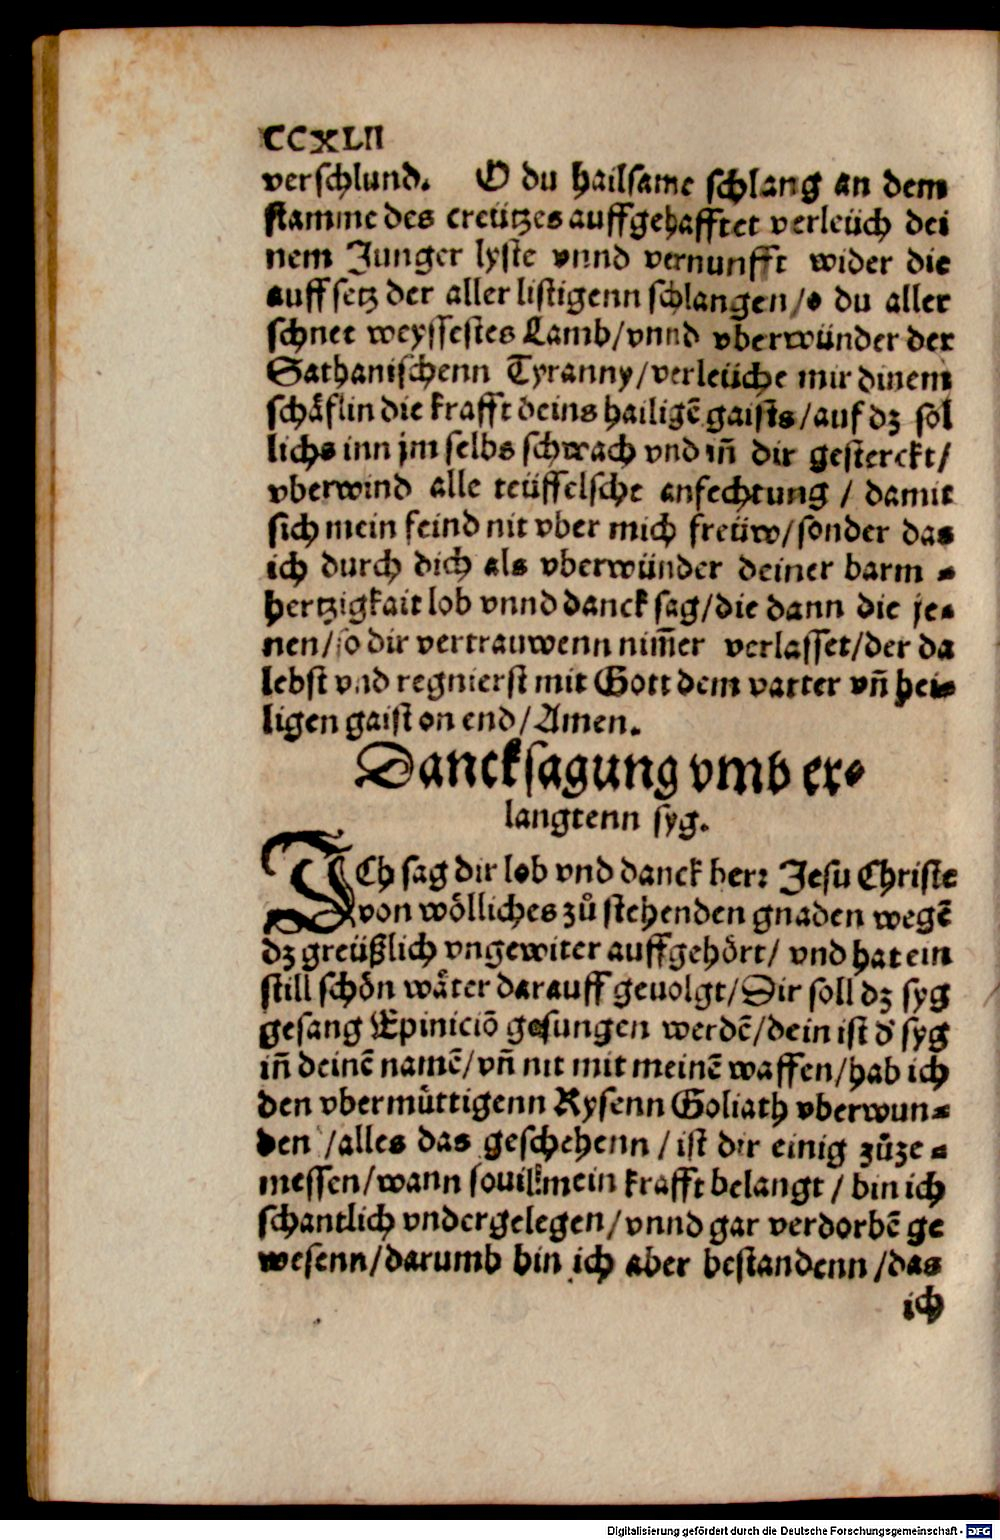 CCXLII
verschlund. O du hailsame schlang an dem
stamme des creützes auffgehafftet verleüch dei
nem Junger lyste vnnd vernunfft wider die
auffsetz der aller listigenn schlangen/o du aller
schnee weyssestes Lamb/vnnd vberwünder der
Sathanischenn Tyranny/verleüche mir dinem
schäflin die krafft deins hailigẽ gaists/auf dz söl
lichs inn jm selbs schwach vnd iñ dir gesterckt/
vberwind alle teüffelsche anfechtung / damit
sich mein feind nit vber mich freüw/sonder das
ich durch dich als vberwünder deiner barm-
hertzigkait lob vnnd danck sag/die dann die je-
nen/so dir vertrauwenn nim̃er verlasset/der da
lebst vnd regnierst mit Gott dem vatter vñ hei-
ligen gaist on end/Amen.
Dancksagung vmb er-
langtenn syg.
ICh sag dir lob vnd danck herr Jesu Christe
von wölliches zů stehenden gnaden wegẽ
dz greüßlich vngewiter auffgehört/ vnd hat ein
still schön wäter darauff geuolgt/Dir soll dz syg
gesang Epiniciõ gesungen werdẽ/dein ist d' syg
iñ deinẽ namẽ/vñ nit mit meinẽ waffen/hab ich
den vbermüttigenn Rysenn Goliath vberwun-
den /alles das geschehenn / ist dir einig zůze-
messen/wann souil mein krafft belangt / bin ich
schantlich vndergelegen/vnnd gar verdorbẽ ge
wesenn/darumb bin ich aber bestandenn /das
ich
Digitalisierung gefördert durch die Deutsche Forschungsgemeinschaft - DFG